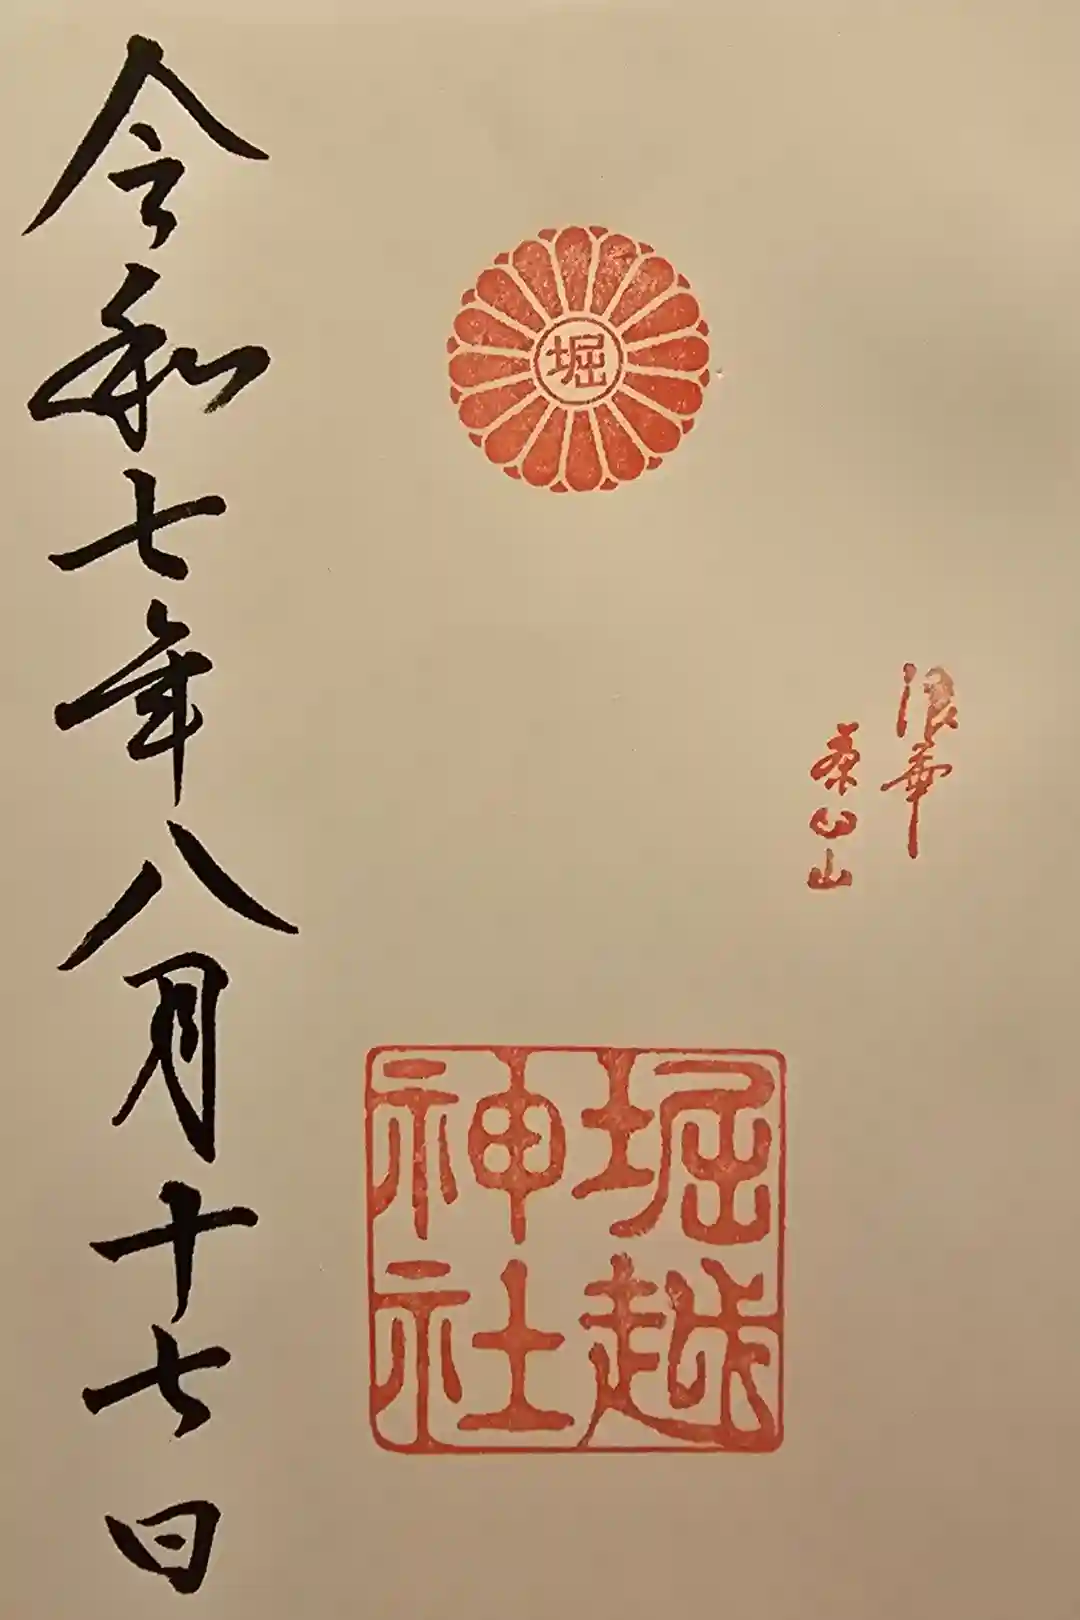 浪華
茶臼山
堀
堀越
神社
令和七年八月十七日